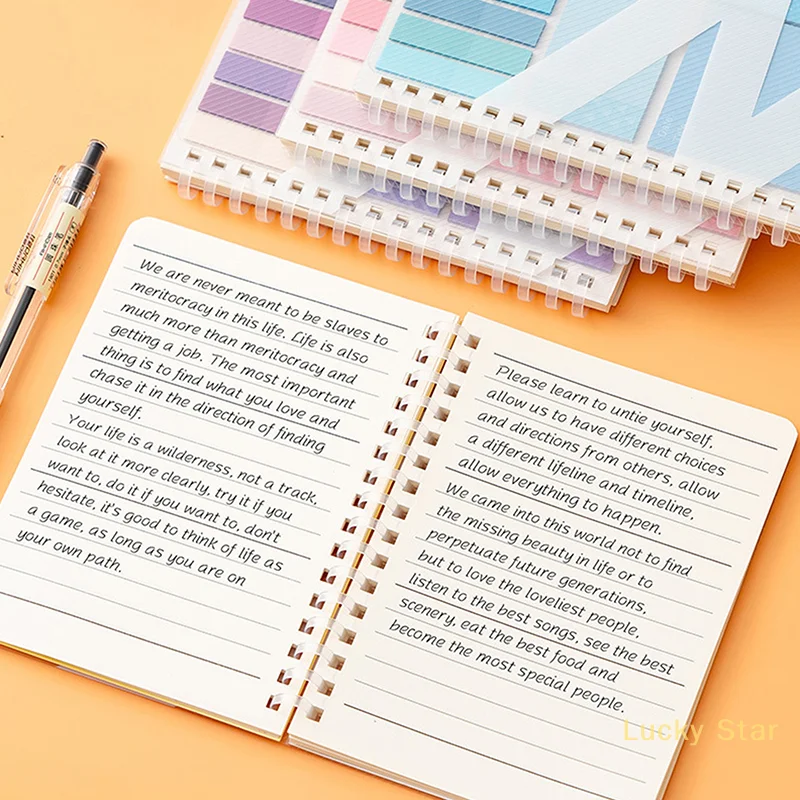 We are never meant to be slaves to
meritocracy in this life. Life is also
much more than meritocracy and
getting a job. The most important
thing is to find what you love and
chase it in the direction of finding
yourself.
Your life is a wilderness, not a track,
look at it more clearly, try it if you
want to, do it if you want to, don't
hesitate, it's good to think of life as
a game, as long as you are on
your own path.
Please learn to untie yourself,
allow us to have different choices
and directions from others, allow
a different lifeline and timeline,
allow everything to happen.
We came into this world not to find
the missing beauty in life or to
perpetuate future generations,
but to love the loveliest people,
listen to the best songs, see the best
scenery, eat the best food and
become the most special people.
Lucky Star